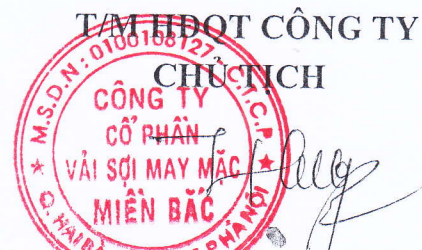 T/M HĐQT CÔNG TY
CHỦ TỊCH
M.S.D.N: 0100108127 C.T.C.P
CÔNG TY
CỔ PHẦN
VẢI SỢI MAY MẶC
MIỀN BẮC